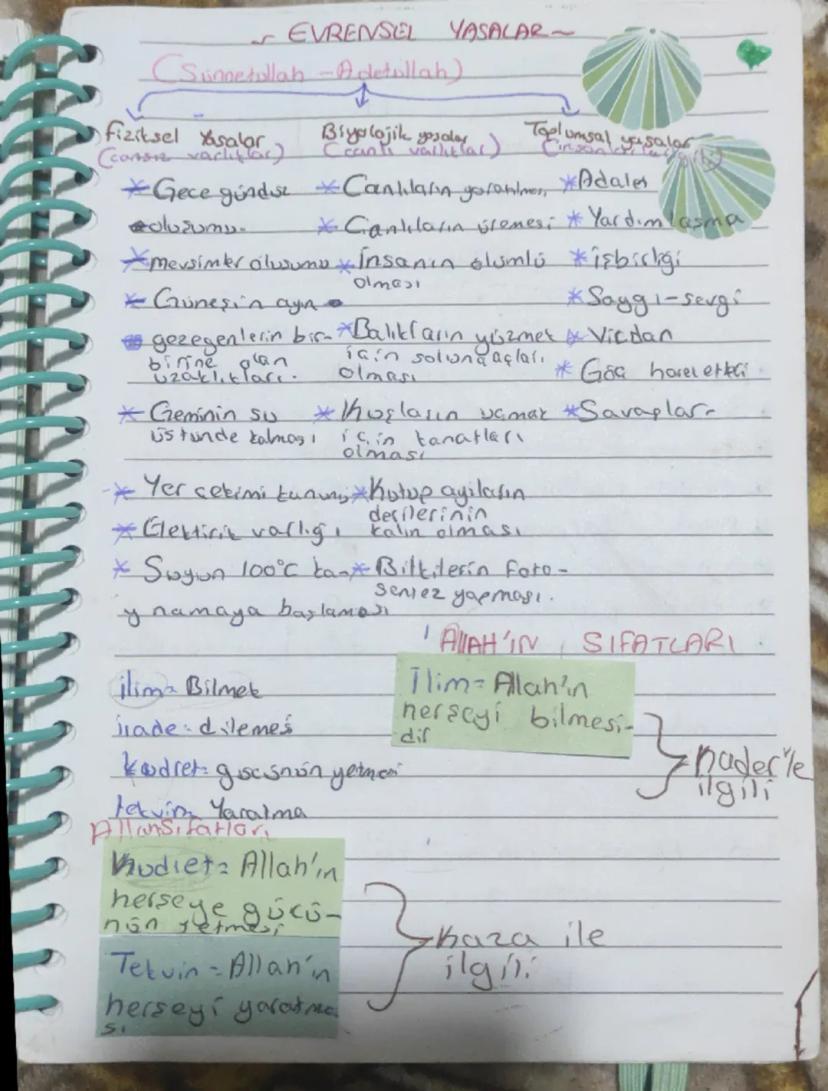 ~ EVRENSEL YASALAR ~
(Sünnetullah - Adetullah)
Fiziksel Yasalar
(cansız varlıklar)
Biyolojik yasalar
(canlı varlıklar)
Toplumsal yasalar
* Gece gündüz
oluşumu.
* mevsimler oluşumu
* Güneşin ayın
gezegenlerin bir-
birine olan
uzaklıkları.
* Geminin su
üstünde kalması
* Yer çekimi kanunu
* Elektirik varlığı
* Suyun 100°C ka-
ynamaya başlaması
* Canlıların yaratılması
* Canlıların üremesi
* İnsanın ölümlü
olması
* Balıkların yüzmek
için solungaçları
olması
* Kuşların uçmak
için kanatları
olması
* Kutup ayıların
derilerinin
kalın olması
* Bitkilerin foto-
sentez yapması.
* Adalet
* Yardımlaşma
* işbirliği
* Saygı-sevgi
* Vicdan
* Göç hareketi
* Savaşlar
ALLAH'IN SIFATLARI
ilim= Bilmek
irade= dilemesi
kudret= gücünün yetmesi
tekvin= Yaratma
İlim= Allah'ın
herşeyi bilmesi-
dir
kader'le
ilgili
Allah Sıfatları
Kudret= Allah'ın
herşeye gücü-
nün yetmesi
Tekvin= Allah'ın
herşeyi yaratma
sı
kaza ile
ilgili